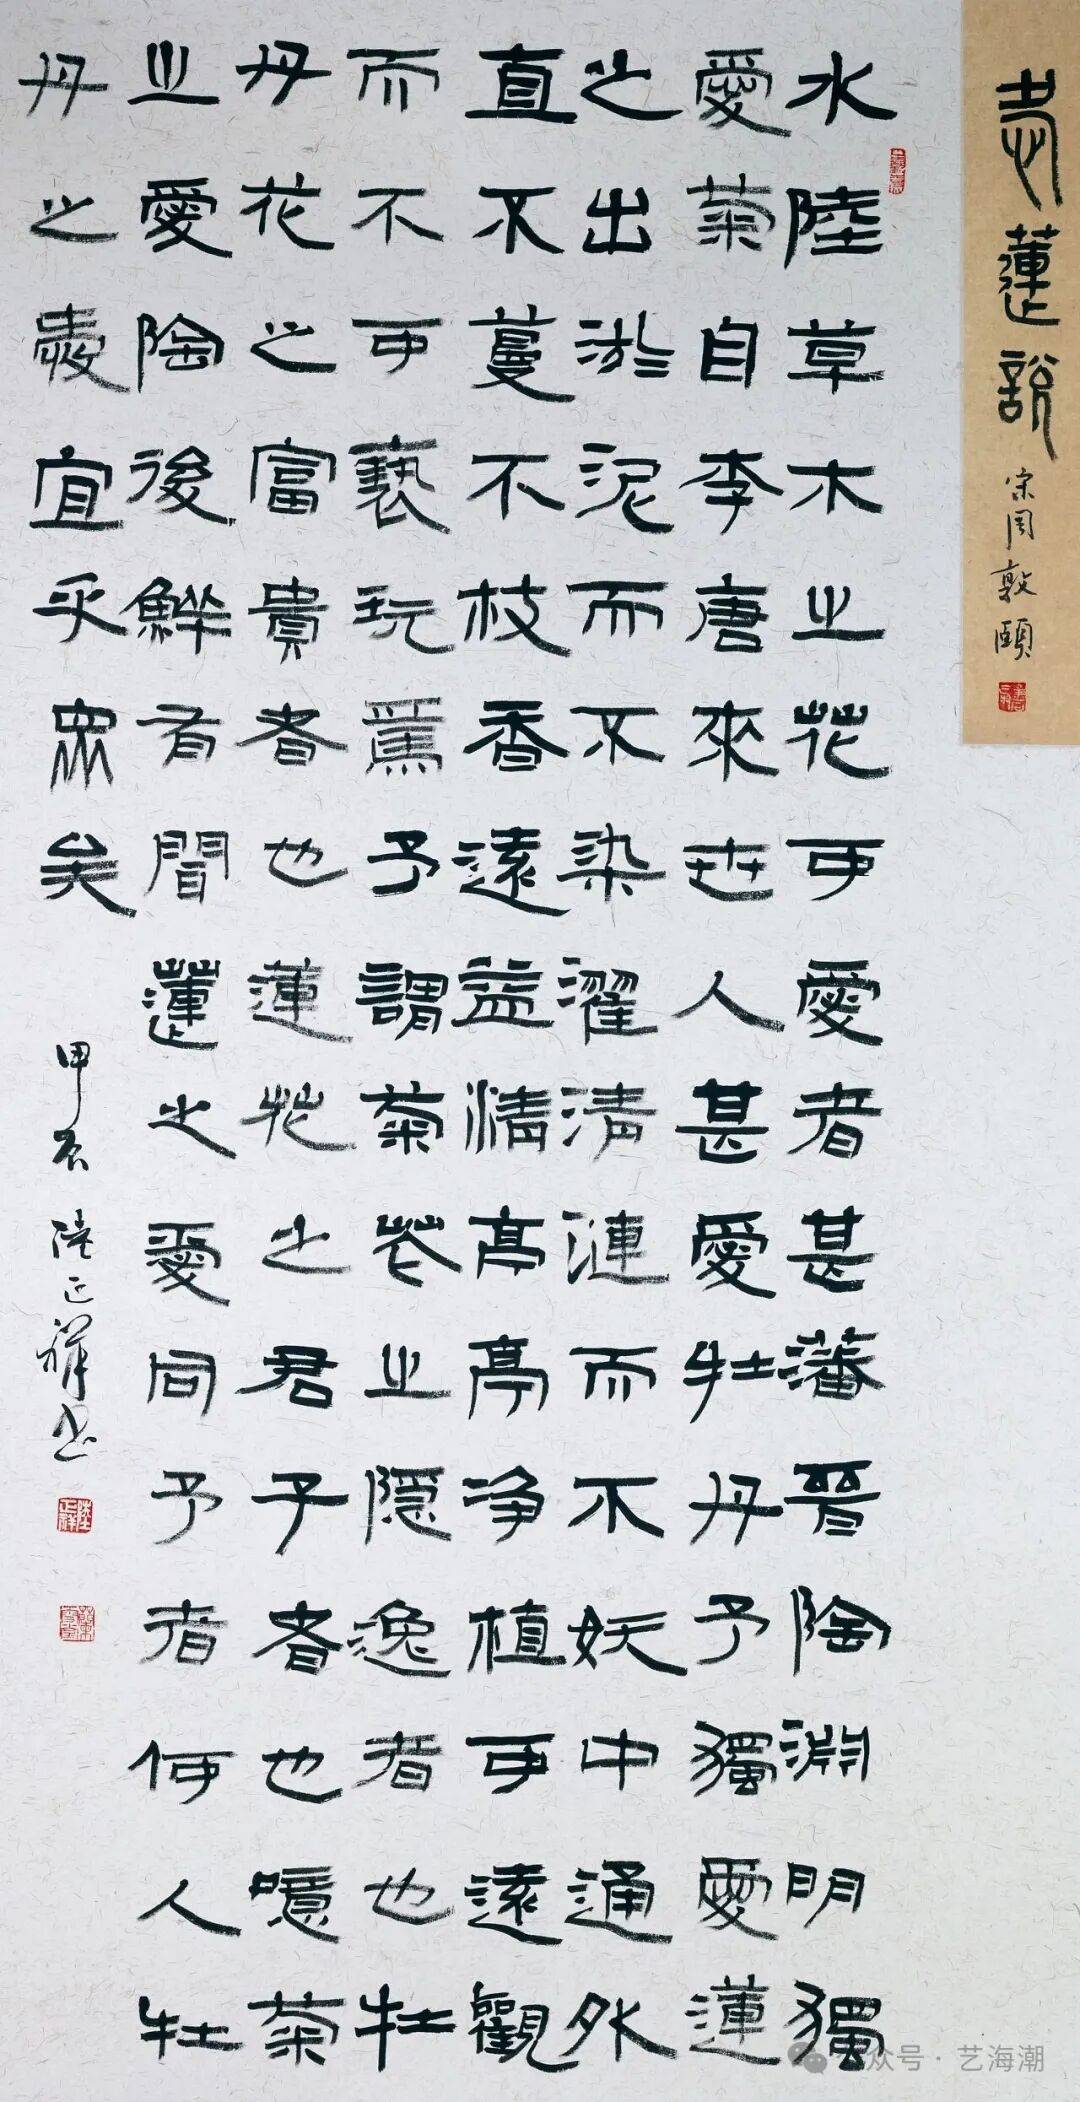 愛蓮說
宋周敦頤
水陸草木之花可愛者甚藩晉陶淵明獨
愛菊自李唐來世人甚愛牡丹予獨愛蓮
之出淤泥而不染濯清漣而不妖中通外
直不蔓不枝香遠益清亭亭净植可遠觀
而不可褻玩焉予謂菊花之隱逸者也牡
丹花之富貴者也蓮花之君子者也噫菊
之愛陶後鮮有聞蓮之愛同予者何人牡
丹之愛宜乎眾矣
甲辰 陸正祥書
陸正祥
公众号·艺海潮